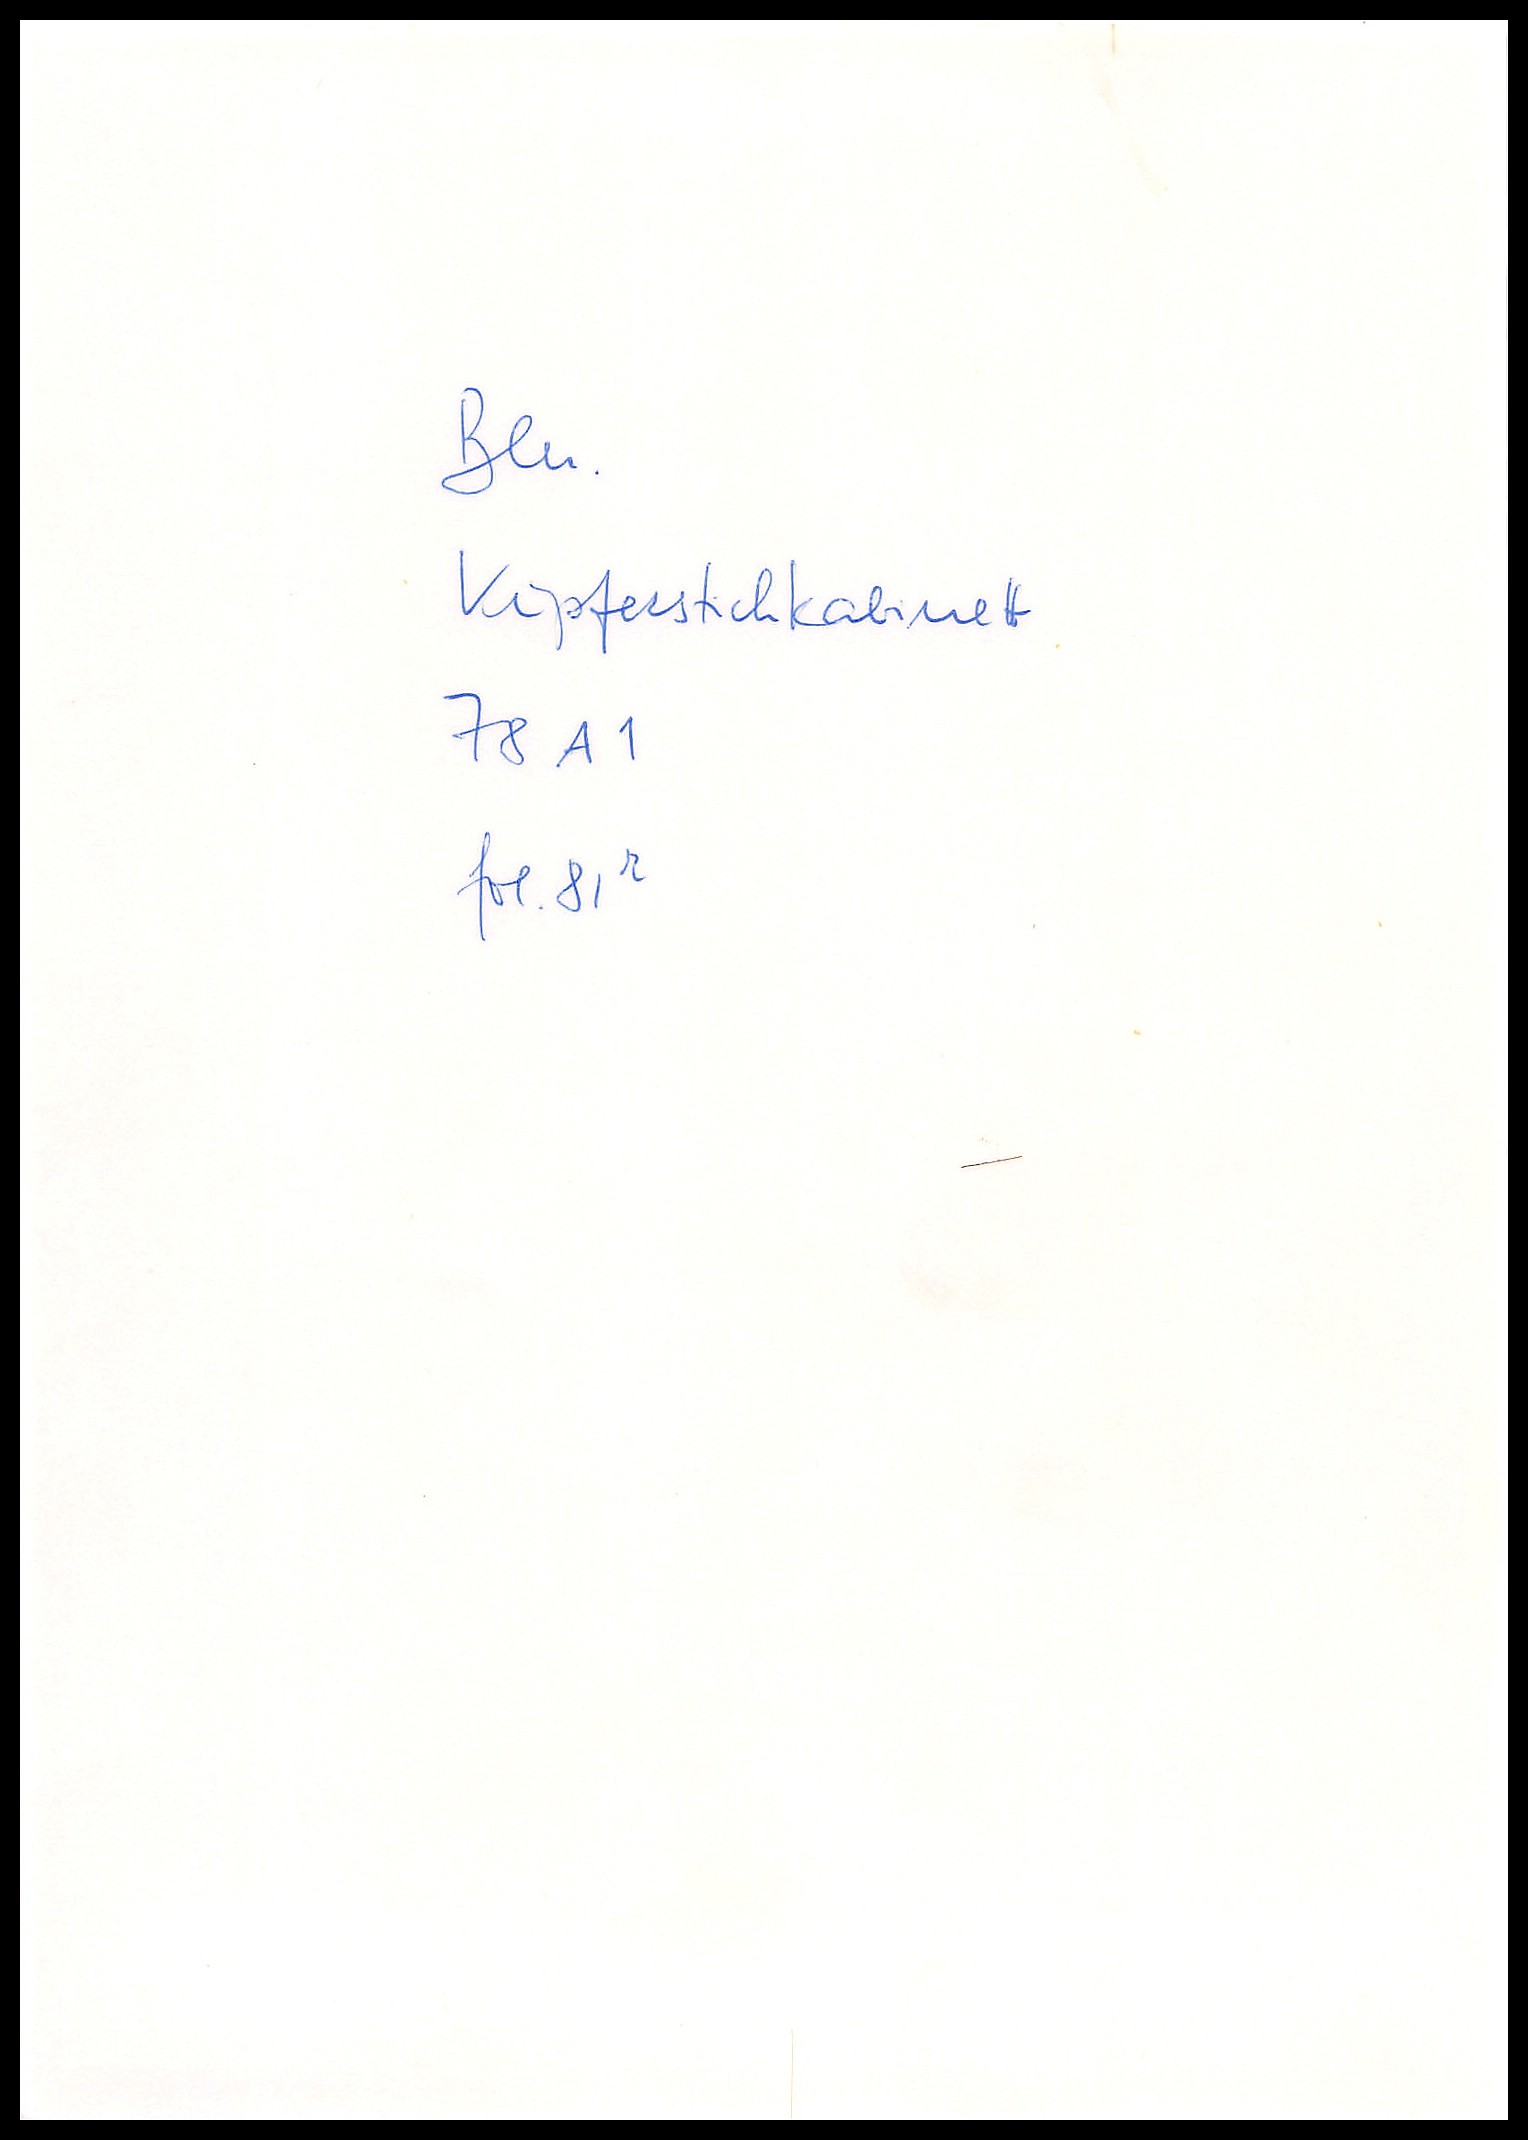 Bln.
Kupferstichkabinett
78 A 1
fol. 81 r